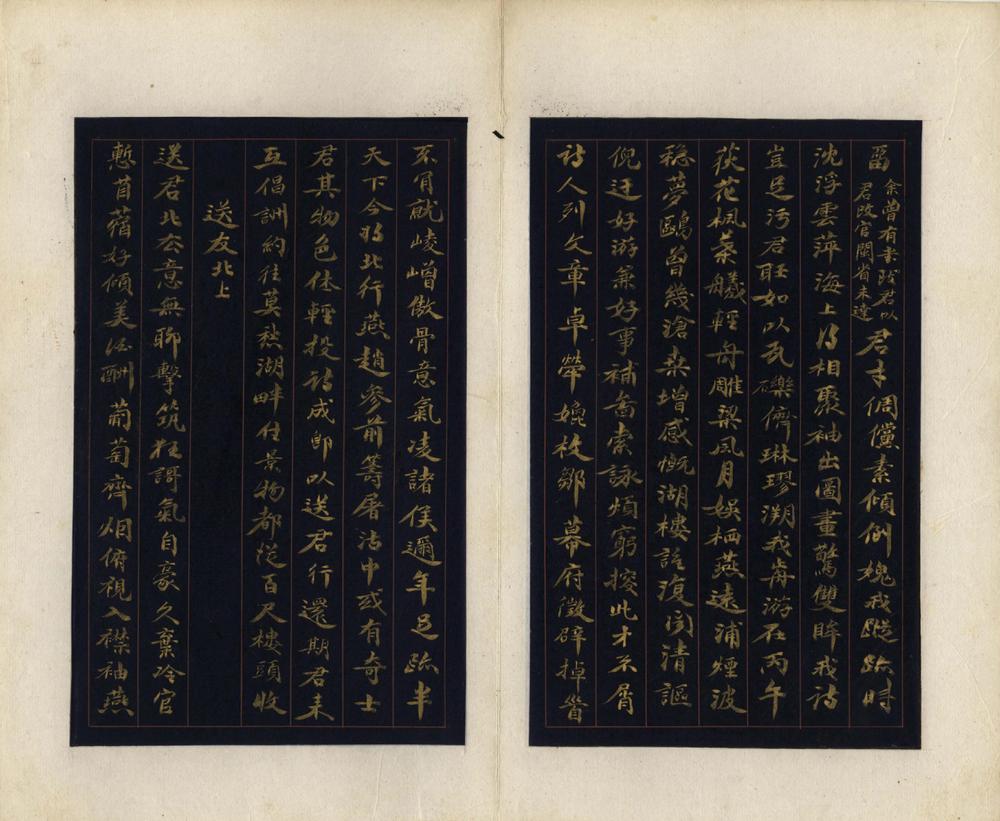 留余曾有書致君以君改官閩省未達君才倜儻素傾倒媿我蹤跡時
沈浮雲萍海上得相聚袖出圖畫驚雙眸我詩
豈足汚君耳如以瓦礫儕琳璆溯我壯游在丙午
荻花楓葉艤輕舟雕梁風月娛栖燕遠浦煙波
穩夢鷗曾幾滄桑增感慨湖樓誰復闵清謳
倪迂好游兼好事補圖索詠煩窮搜此才不屑
詩人列文章卓犖嫓枚鄒幕府徵辟掉頭
不肎就崚嶒傲骨意氣凌諸侯邇年足跡半
天下今將北行燕趙參前籌屠沽中或有奇士
君其物色休輕投詩成卽以送君行還期君來
互倡詶約往莫愁湖畔住景物都從百尺樓頭收
送友北上
送君北去意無聊擊筑狂謌氣自豪久棄冷官
慙苜蓿好傾美酒酬葡萄齊烟俯視入襟袖燕